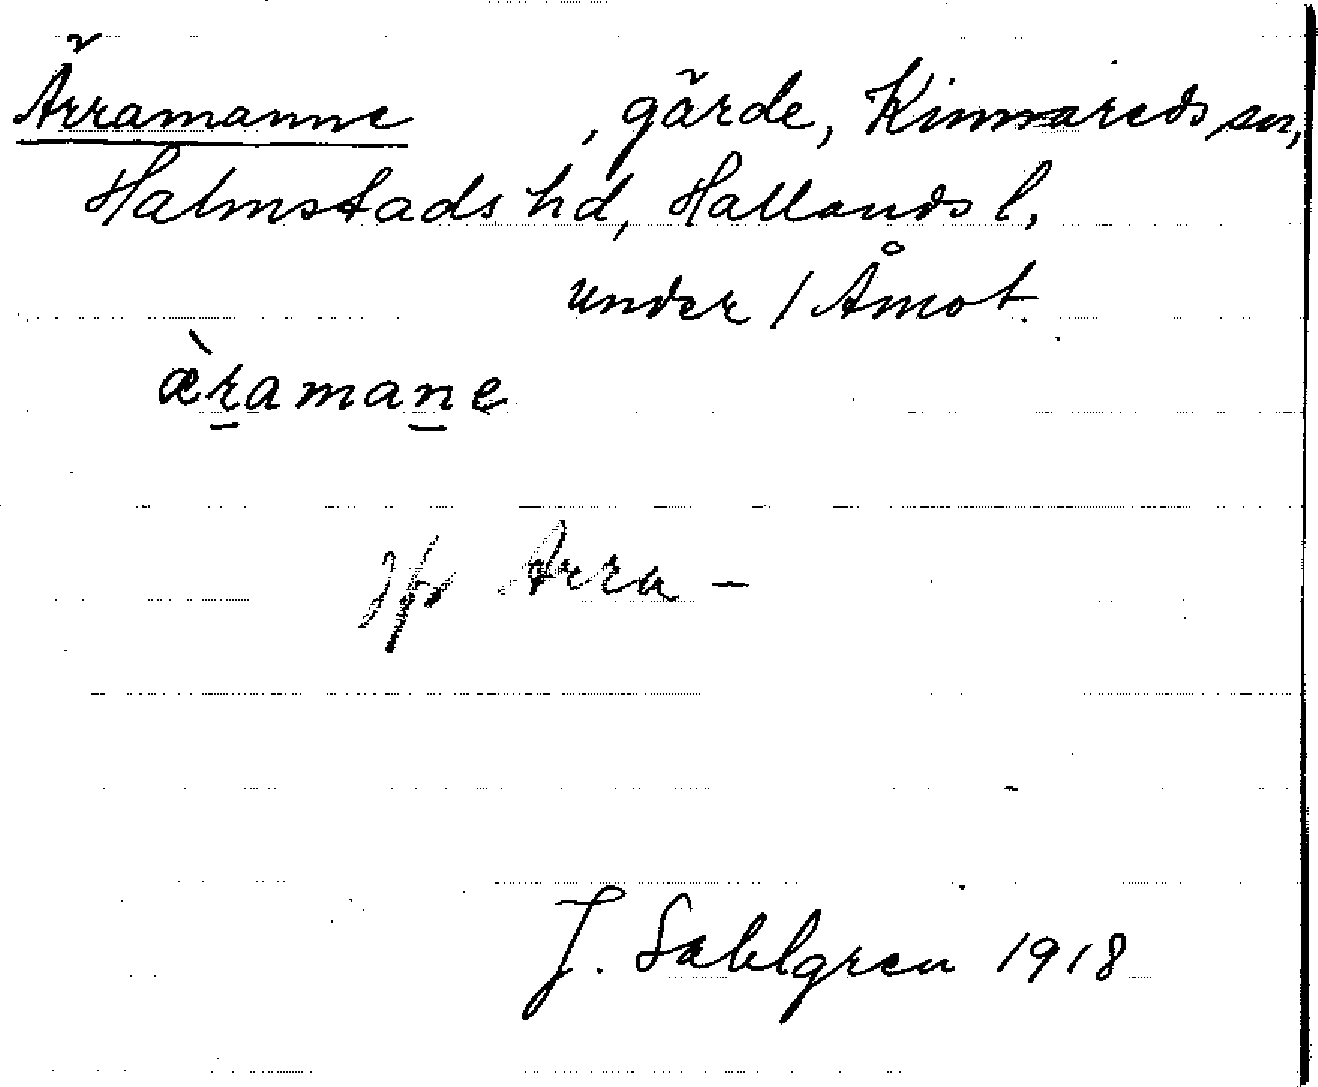 Ärramanne , gärde, Kinnareds sn,
Halmstads hd, Hallands l.
under 1 Åmot.
ær̲aman̲e
Jfr Arra-
J. Sahlgren 1918